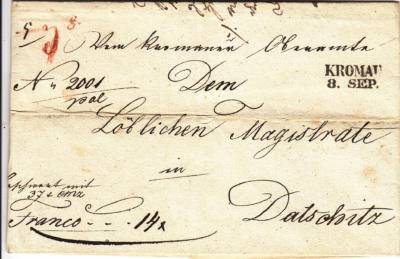 Vom Kromauer Oberamte
KROMAU
8. SEP.
N 2001
pol
Dem
Löblichen Magistrate
in
beschwert mit
Franco - - - 14 x
Datschitz